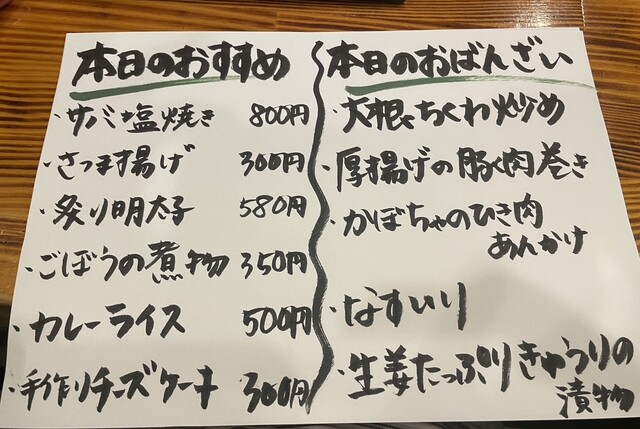 本日のおすすめ
・サバ塩焼き 800円
・さつま揚げ 300円
・炙り明太子 580円
・ごぼうの煮物 350円
・カレーライス 500円
・手作りチーズケーキ 300円
本日のおばんざい
・大根とちくわ炒め
・厚揚げの豚肉巻き
・かぼちゃのひき肉
あんかけ
・なすいり
・生姜たっぷりきゅうりの
漬物